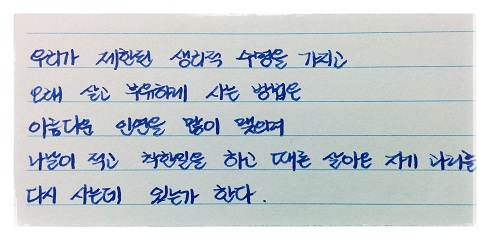 우리가 제한된 생리적 수명을 가지고
오래 살고 부유하게 사는 방법은
아름다운 인연을 많이 맺으며
나날이 적고 착한일을 하고 때로 살아온 자기 과거를
다시 사는데 있는가 한다.